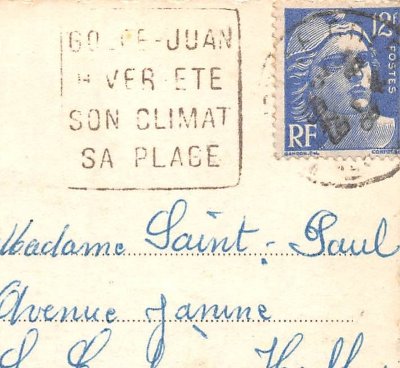 GOLFE-JUAN
HIVER-ETE
SON CLIMAT
SA PLAGE
12F
POSTES
RF
Madame Saint-Paul
Avenue Janine